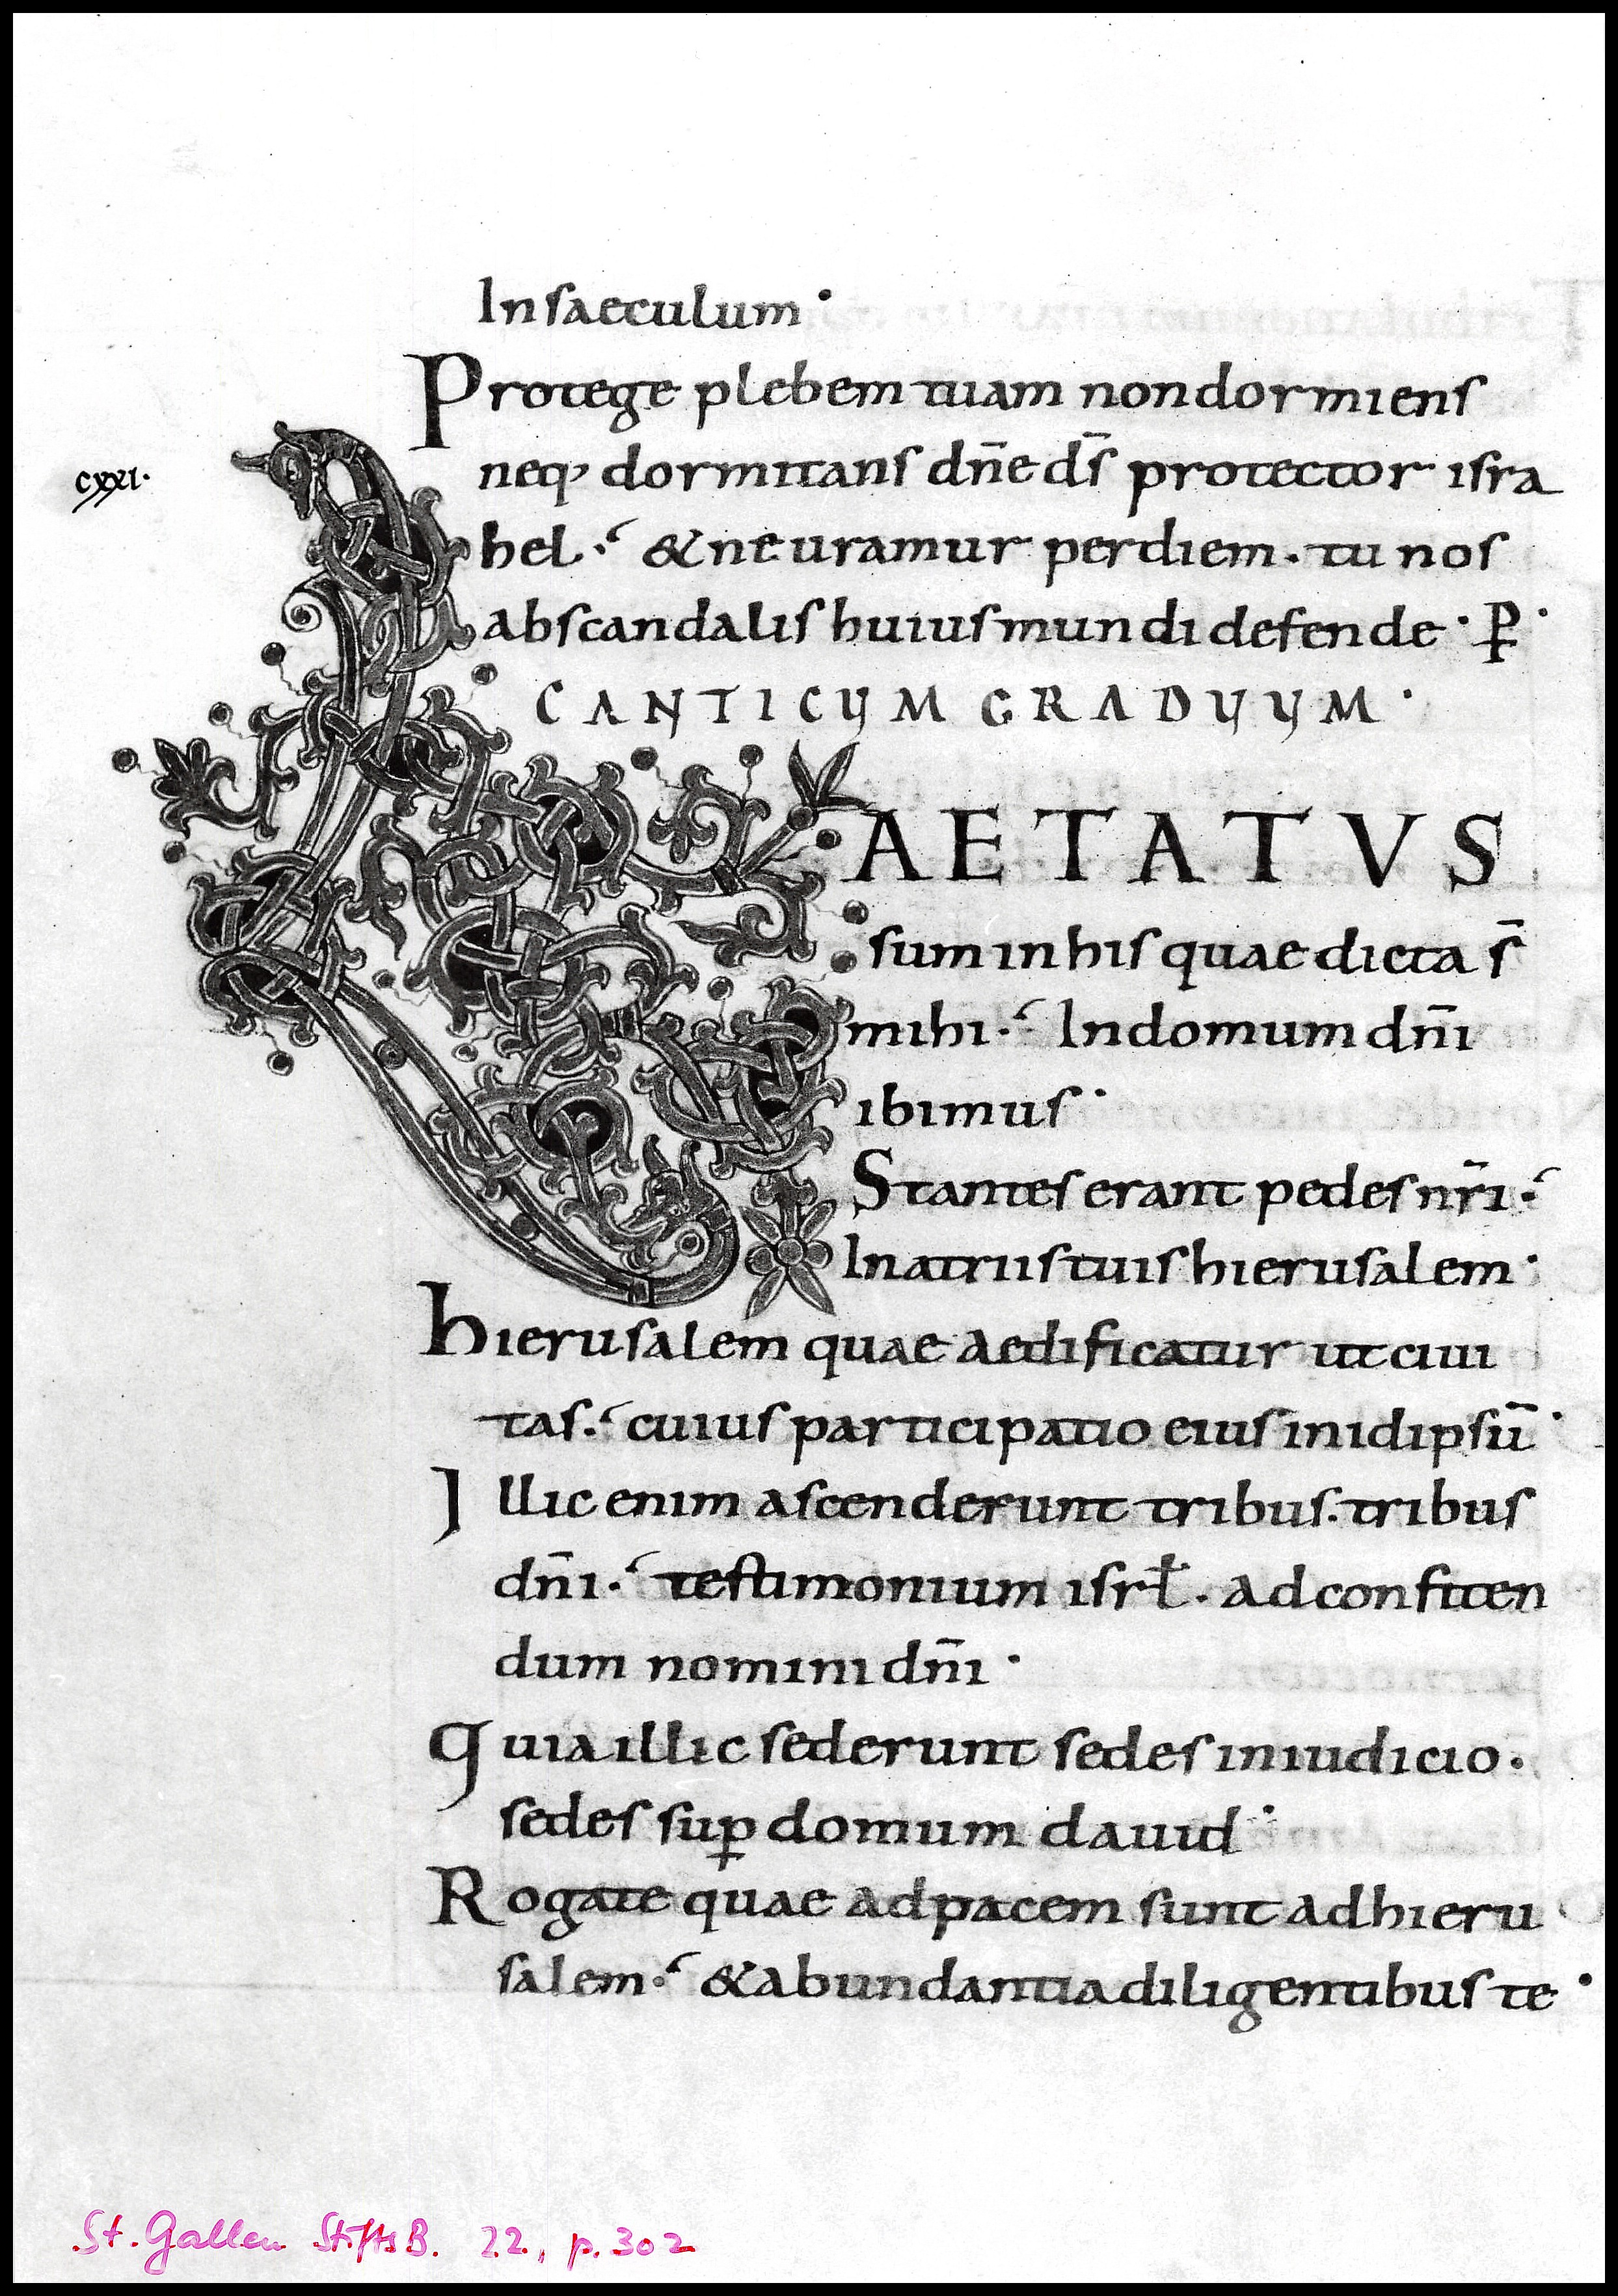 In saeculum·
Protege plebem tuam non dormiens
CXXI·
neq; dormitans dn̄e ds̄ protector isra
hel·́ & ne uramur per diem· tu nos
ab scandalis huius mundi defende· P̱·
CANTICUM GRADUUM·
LAETATVS
sum in his quae dicta s̄
mihi·́ In domum dn̄i
ibimus·
Stantes erant pedes nr̄i·́
In atriis tuis hierusalem·
hierusalem quae aedificatur ut ciui
tas·́ cuius participatio eius in idipsū·
Illic enim ascenderunt tribus· tribus
dn̄i·́ testimonium isrł· ad confiten
dum nomini dn̄i·
Quia illic sederunt sedes in iudicio·
sedes sup̱ domum dauid·
Rogate quae ad pacem sunt ad hieru
salem·́ & abundantia diligentibus te·
St. Gallen StiftsB. 22, p. 302